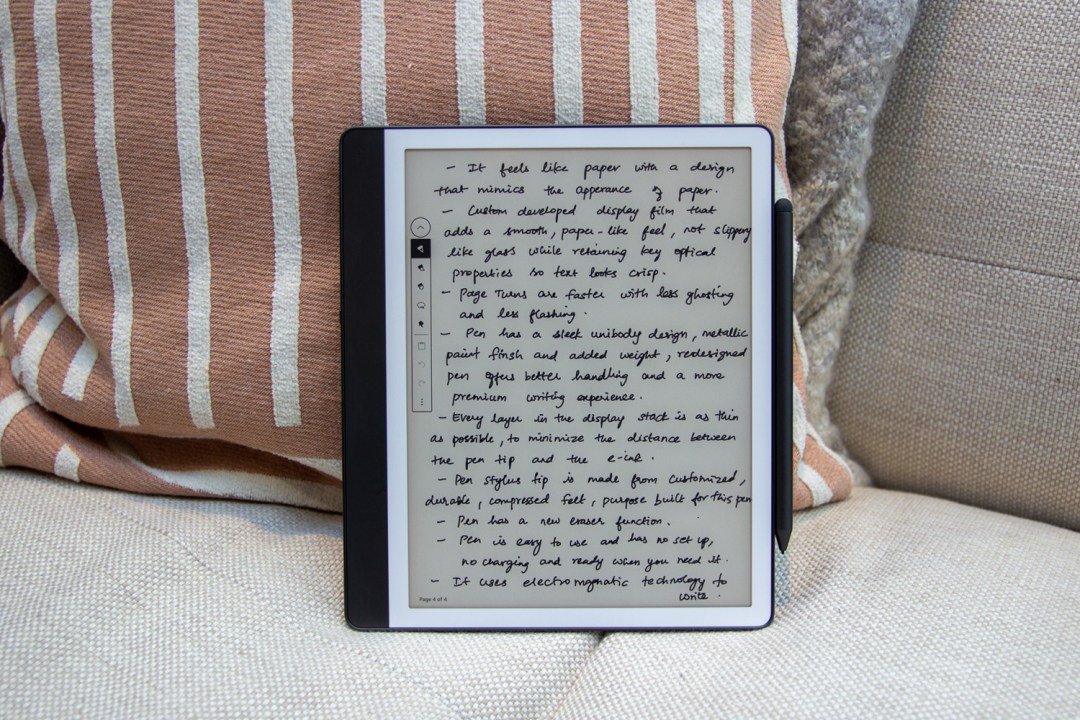 - It feels like paper with a design
that mimics the apperance of paper.
- Custom developed display film that
adds a smooth, paper-like feel, not slippery
like glass while retaining key optical
properties so text looks crisp.
- Page Turns are faster with less ghosting
and less flashing.
- Pen has a sleek unibody design, metallic
paint finsh and added weight, redesigned
pen offers better handling and a more
premium writing experience.
- Every layer in the display stack is as thin
as possible, to minimize the distance between
the pen tip and the e-ink.
- Pen stylus tip is made from customized,
durable, compressed felt, purpose built for this pen
- Pen has a new eraser function.
- Pen is easy to use and has no set up,
no charging and ready when you need it.
- It uses electromagnatic technology to
write.
Page 4 of 4